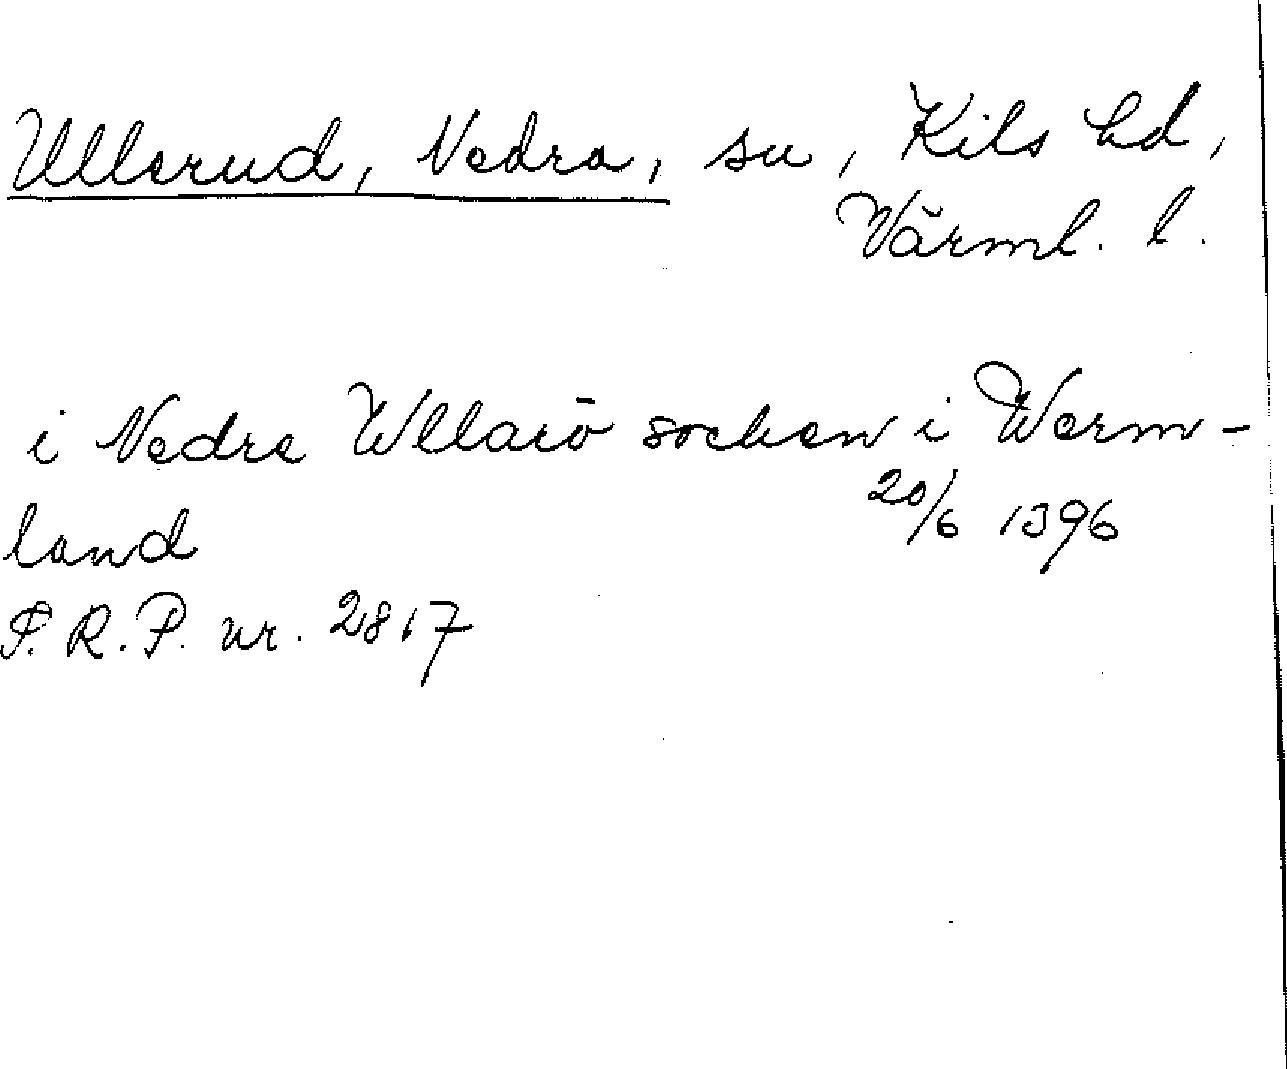 Ullerud, Nedra, sn, Kils hd,
Värml. l.
i Nedre Wllarö socken i Werm-
land
20/6 1396
S.R.P. nr. 2817